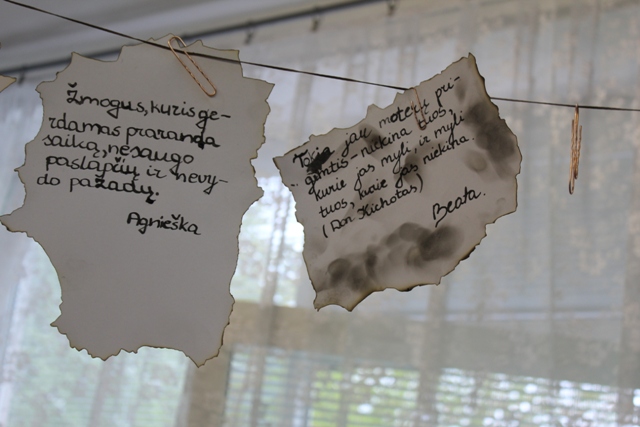 Žmogus, kuris ge-
rdamas praranda
saiką, nesaugo
paslapčių ir nevy-
do pažadų.
Agnieška
Tokia jau moterų pri-
gimtis - niekina tuos,
kurie jas myli, ir myli
tuos, kurie jas niekina.
(Don Kichotas)
Beata.